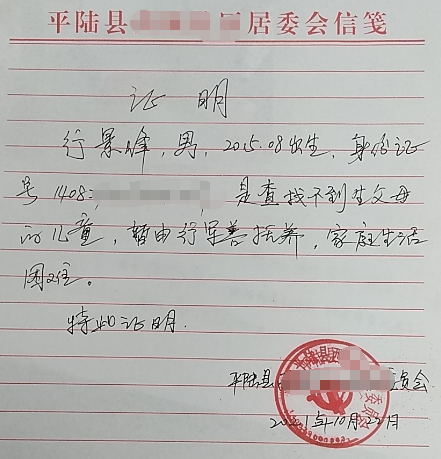 平陆县 居委会信笺
证 明
行景峰，男，2015.08出生，身份证
号1408 是查找不到生父母
的儿童，暂由行军善抚养，家庭生活
困难。
特此证明.
平陆县 委员会
2021年10月22日